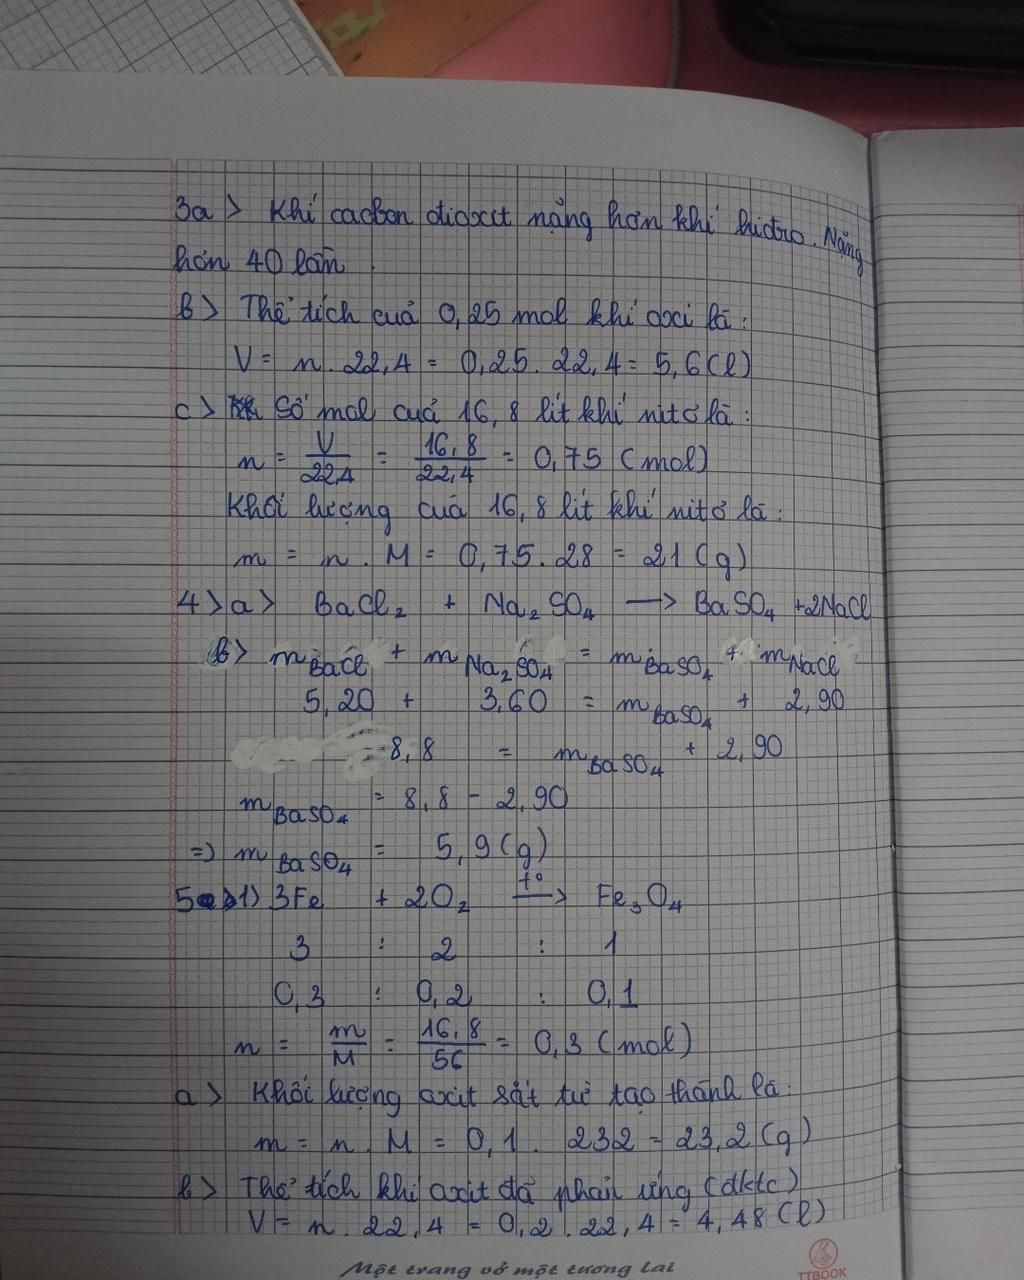 3a> Khí cacbon dioxit nặng hơn khí hidro. Nặng
hơn 40 lần.
b> Thể tích cuả 0,25 mol khí oxi là:
V = n. 22,4 = 0,25. 22,4 = 5,6 (l)
c> Số mol cuả 16,8 lít khí nitơ là:
n = V/22,4 = 16,8/22,4 = 0,75 (mol)
Khối lượng cuả 16,8 lít khí nitơ là:
m = n. M = 0,75. 28 = 21 (g)
4>a> BaCl₂ + Na₂SO₄ → BaSO₄ + 2NaCl
b> m BaCl + m Na₂SO₄ = m BaSO₄ + m NaCl
5,20 + 3,60 = m BaSO₄ + 2,90
8,8 = m BaSO₄ + 2,90
m BaSO₄ = 8,8 - 2,90
=> m BaSO₄ = 5,9 (g)
5 1) 3Fe + 2O₂ t°→ Fe₃O₄
3 : 2 : 1
0,3 : 0,2 : 0,1
n = m/M = 16,8/56 = 0,3 (mol)
a> Khối lượng oxit sắt từ tạo thành là:
m = n. M = 0,1. 232 = 23,2 (g)
b> Thể tích khí oxit đã phản ứng (đktc)
V = n. 22,4 = 0,2. 22,4 = 4,48 (l)
Một trang vở một tương lai
TTBOOK